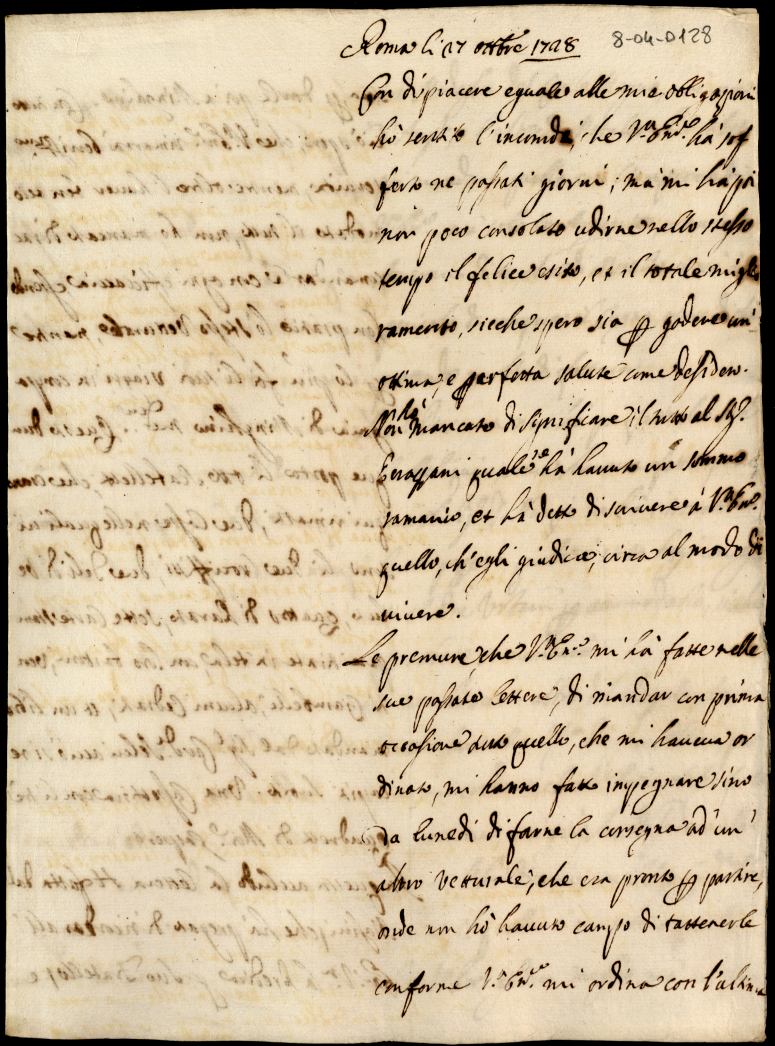 Roma li 27 ottbre 1728
8-04-0128
Con dispiacere eguale alle mie obligazioni
hò sentito l'incomdi, che V.ra Em.za hà sof
ferto ne passati giorni; mà mi hà poi
non poco consolato udirne nello stesso
tempo il felice esito, et il totale miglio
ramento, sicche spero sia p godere un'
ottima, e perfetta salute come desidero.
Non hò mancato di significare il tutto al Sig.
quale ne hà havuto un sommo
et hà detto di scrivere à V.ra Em.za
quello, ch'egli giudica, circa al modo di
vivere.
Le premure, che V.ra Em.za mi hà fatte nelle
sue passate lettere, di mandar con prima
occasione tutto quello, che mi haveva or
dinato, mi hanno fatto impegnare sino
da lunedì di farne la consegna ad un'
altro vetturale, che era pronto p partire,
onde non hò havuto campo di trattenerle
conforme V.ra Em.za mi ordina con l'ultima